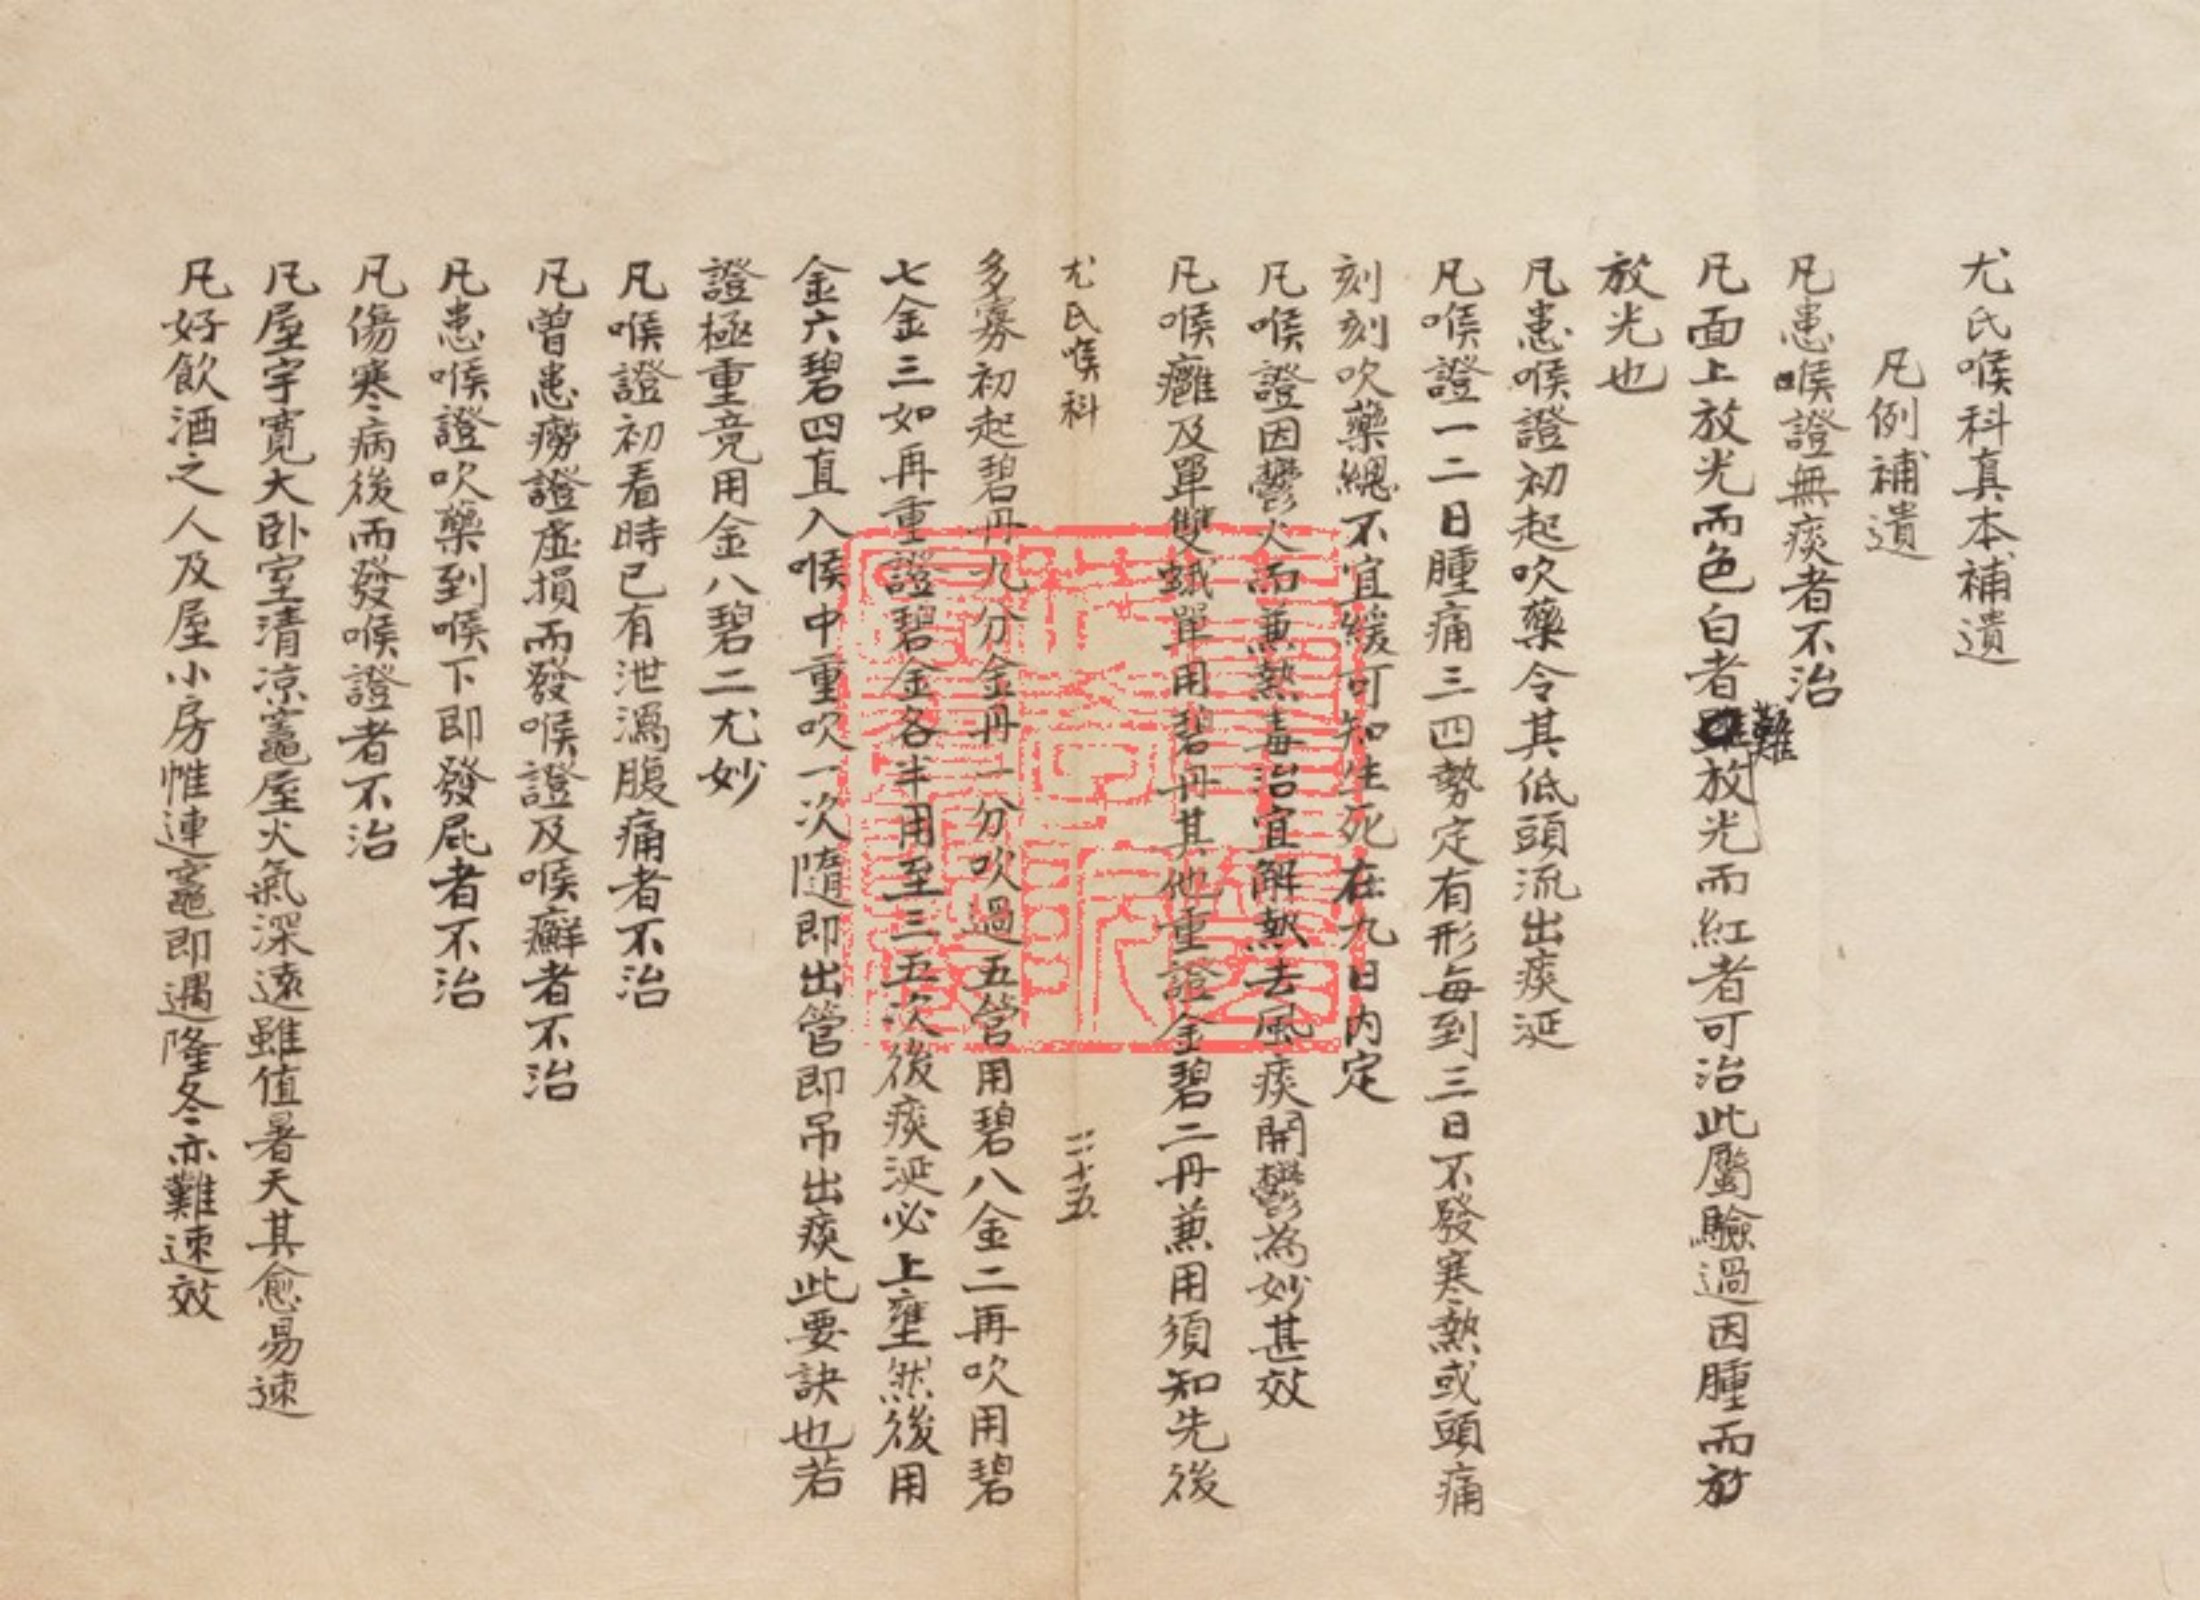 尤氏喉科真本補遺
凡例補遺
凡患喉證無痰者不治
凡面上放光而色白者難放光而紅者可治此屬驗過因腫而放
放光也
凡患喉證初起吹藥令其低頭流出痰涎
凡喉證一二日腫痛三四勢定有形每到三日不發寒熱或頭痛
刻刻吹藥總不宜緩可知生死在九日内定
凡喉證因鬱火而兼熱毒治宜解熱去風痰開鬱為妙甚效
凡喉癰及單雙蛾單用碧丹其他重證金碧二丹兼用須知先後
尤氏喉科
二十五
多寡初起碧丹九分金丹一分吹過五管用碧八金二再吹用碧
七金三如再重證碧金各半用至三五次後痰涎必上壅然後用
金六碧四直入喉中重吹一次隨即出管即吊出痰此要訣也若
證極重竟用金八碧二尤妙
凡喉證初看時已有泄瀉腹痛者不治
凡曾患癆證虛損而發喉證及喉癬者不治
凡患喉證吹藥到喉下即發屁者不治
凡傷寒病後而發喉證者不治
凡屋宇寬大卧室清凉竈屋火氣深遠雖值暑天其愈易速
凡好飲酒之人及屋小房帷連竈即遇隆冬亦難速效